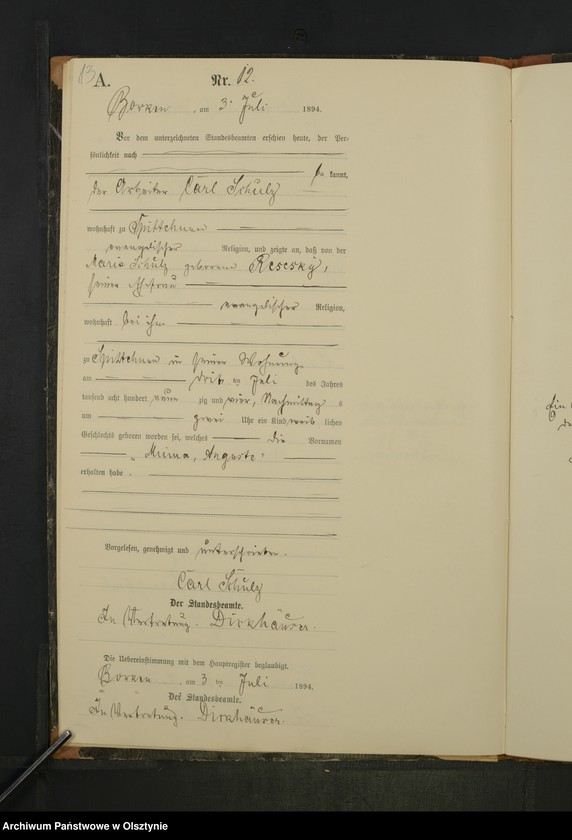 13 A. Nr. 12.
Borken, am 3. Juli 1894.
Vor dem unterzeichneten Standesbeamten erschien heute, der Per-
sönlichkeit nach
kannt,
der Arbeiter Carl Schulz
wohnhaft zu Spittehnen
evangelischer Religion, und zeigte an, daß von der
Maria Schulz geborene
seiner Ehefrau
evangelischer Religion,
wohnhaft bei ihm
zu Spittehnen in seiner Wohnung
am drit ten Juli des Jahres
tausend acht hundert neun zig und vier, Nachmittag s
um zwei Uhr ein Kind weib lichen
Geschlechts geboren worden sei, welches die Vornamen
Auguste
erhalten habe.
Vorgelesen, genehmigt und unterschrieben.
Carl Schulz
Der Standesbeamte.
In Vertretung. Dirkhäuser.
Die Uebereinstimmung mit dem Hauptregister beglaubigt.
Borken, am 3 ten Juli 1894.
Der Standesbeamte.
In Vertretung. Dirkhäuser.
Archiwum Państwowe w Olsztynie